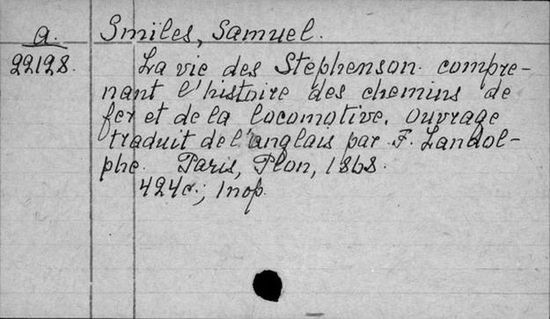 a. Smiles, Samuel.
22128. La vie des Stephenson compre-
nant l'histoire des chemins de
fer et de la locomotive. Ouvrage
traduit de l'anglais par F. Landol-
phe. Paris, Plon, 1868.
424c.; 1пор.